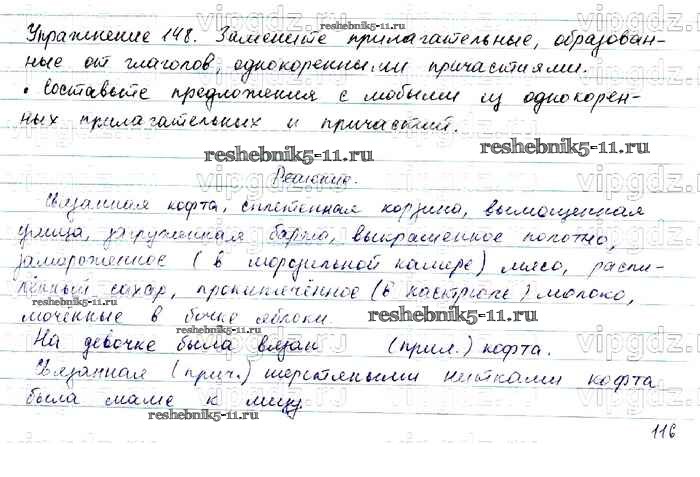 reshebnik5-11.ru
Упражнение 148. Замените прилагательные, образован-
ные от глаголов, однокоренными причастиями.
reshebnik5-11.ru
• Составьте предложения с любыми из однокорен-
ных прилагательных и причастий.
reshebnik5-11.ru reshebnik5-11.ru
Решение.
Связанная кофта, сплетенная корзина, вымощенная
улица, загруженная баржа, выкрашенное полотно,
замороженное (в морозильной камере) мясо, распи-
ленный сахар, прокипячённое (в кастрюле) молоко,
reshebnik5-11.ru
моченные в бочке яблоки.
reshebnik5-11.ru
На девочке была вязан (прил.) кофта.
Связанная (прич.) шерстяными нитками кофта
была маме к лицу.
reshebnik5-11.ru
116
vipgdz.ru